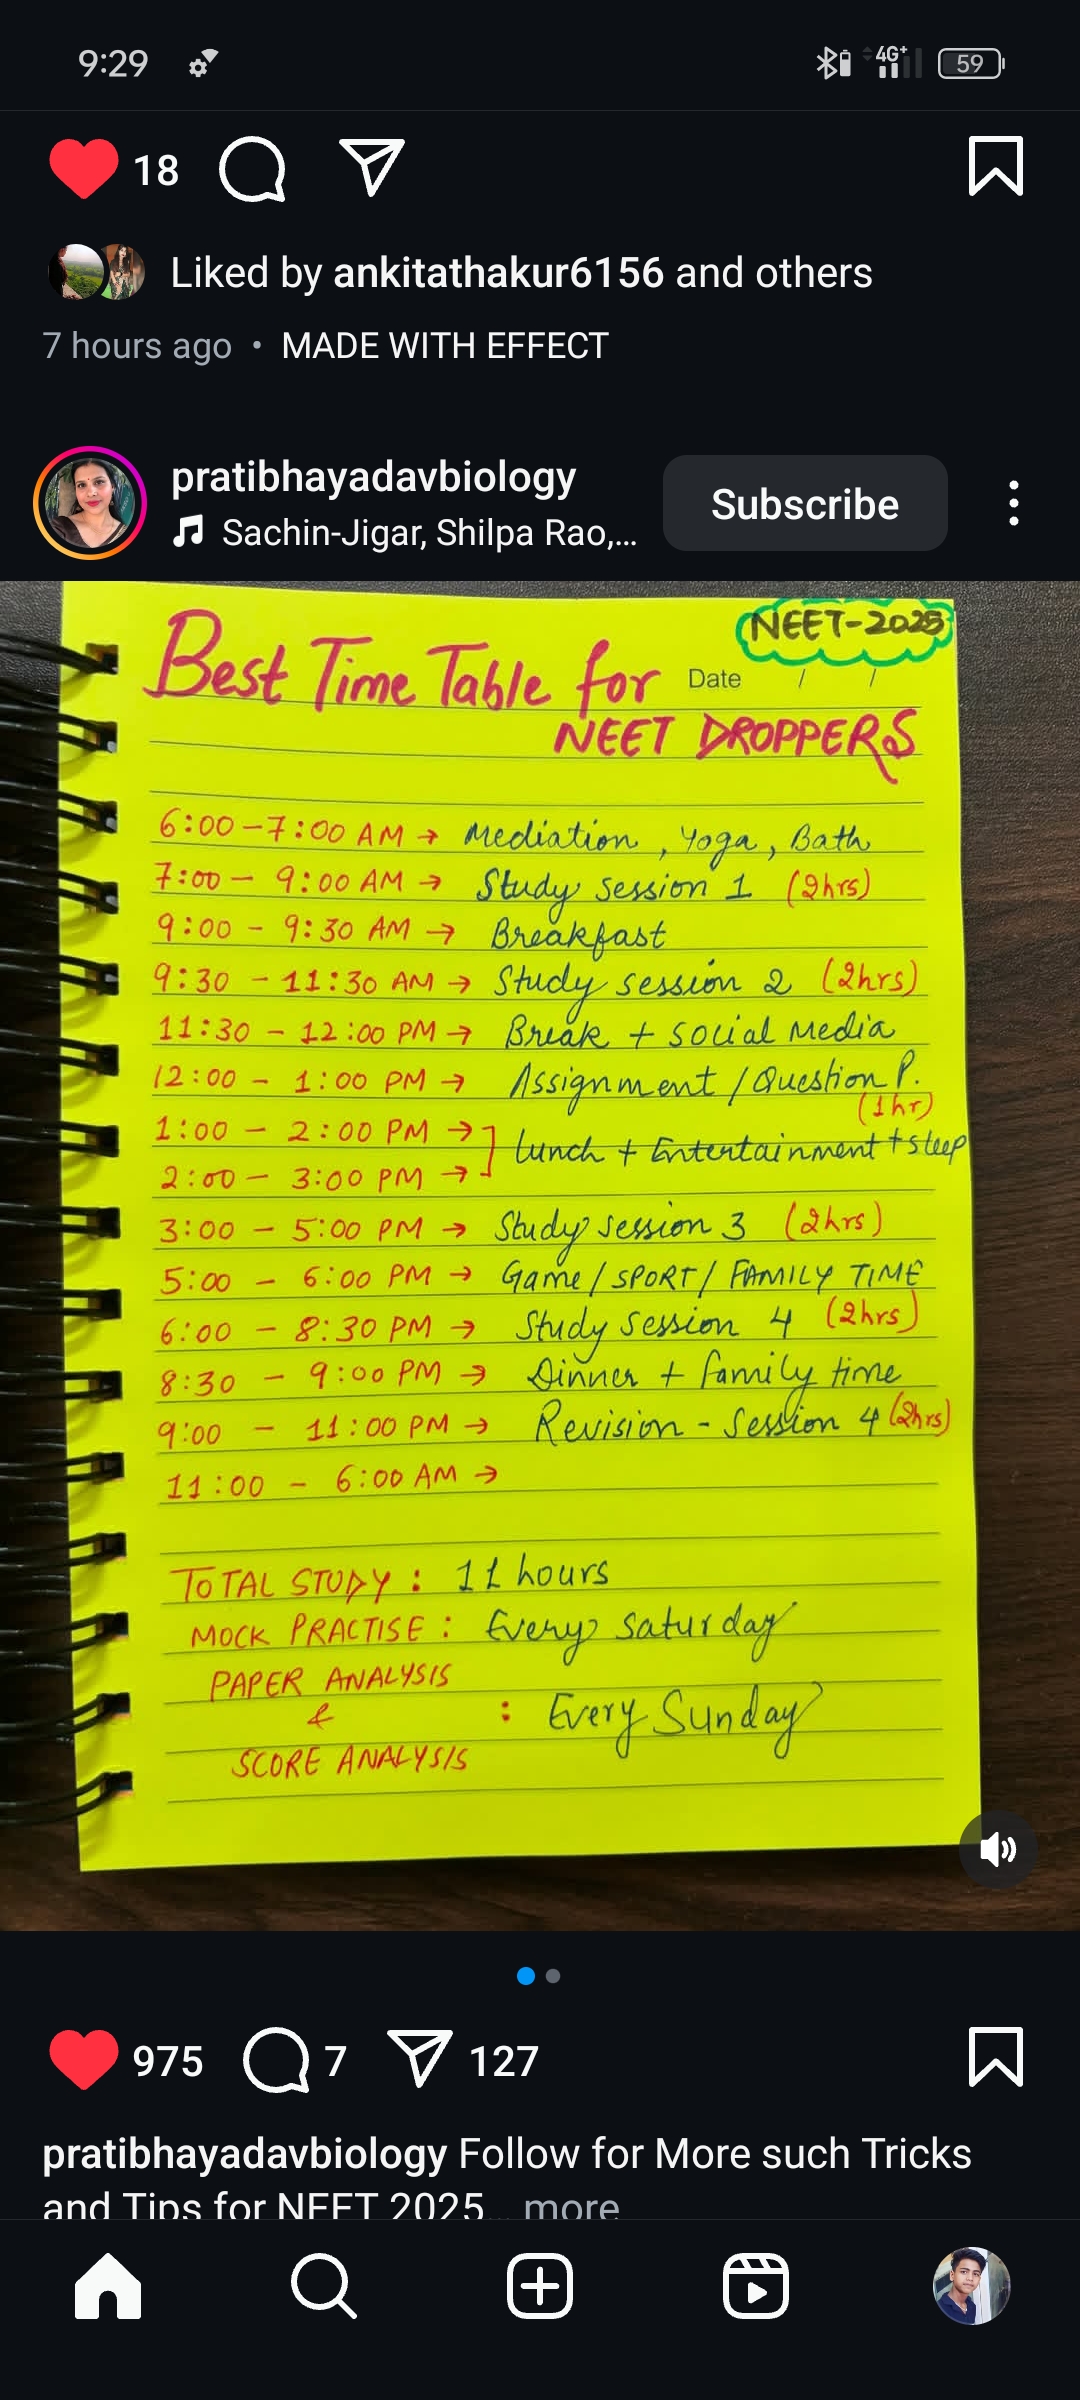 9:29
4G+
59
18
Liked by ankitathakur6156 and others
7 hours ago • MADE WITH EFFECT
pratibhayadavbiology
Sachin-Jigar, Shilpa Rao,...
Subscribe
NEET-2025
Best Time Table for
Date / /
NEET DROPPERS
6:00-7:00 AM → Mediation, Yoga, Bath
7:00 - 9:00 AM → Study session 1 (2hrs)
9:00 - 9:30 AM → Breakfast
9:30 - 11:30 AM → Study session 2 (2hrs)
11:30 - 12:00 PM → Break + social Media
12:00 - 1:00 PM → Assignment / Question P.
(1hr)
1:00 - 2:00 PM →
Lunch + Entertainment + sleep
2:00 - 3:00 PM →
3:00 - 5:00 PM → Study session 3 (2hrs)
5:00 - 6:00 PM → Game / SPORT / FAMILY TIME
6:00 - 8:30 PM → Study session 4 (2hrs)
8:30 - 9:00 PM → Dinner + family time
9:00 - 11:00 PM → Revision - Session 4 (2hrs)
11:00 - 6:00 AM →
TOTAL STUDY : 11 hours
MOCK PRACTISE : Every saturday
PAPER ANALYSIS
& : Every Sunday
SCORE ANALYSIS
975
7
127
pratibhayadavbiology Follow for More such Tricks
and Tips for NEET 2025... more